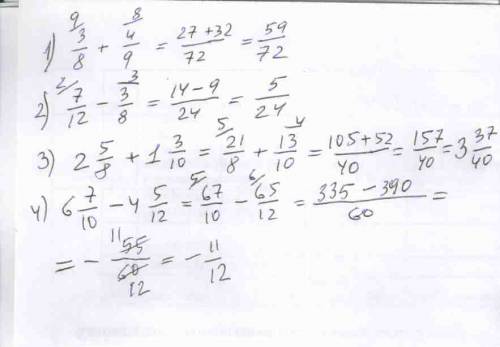 1) ⁹/ 3/8 + ⁸/ 4/9 = (27+32)/72 = 59/72
2) ²/ 7/12 − ³/ 3/8 = (14−9)/24 = 5/24
3) 2 5/8 + 1 3/10 = ⁵/ 21/8 + 13/10 ⁴/ = (105+52)/40 = 157/40 = 3 37/40
4) 6 7/10 − 4 5/12 = ⁵/ 67/10 − ⁶/ 65/12 = (335−390)/60 =
= − 11 55/60 12 = − 11/12